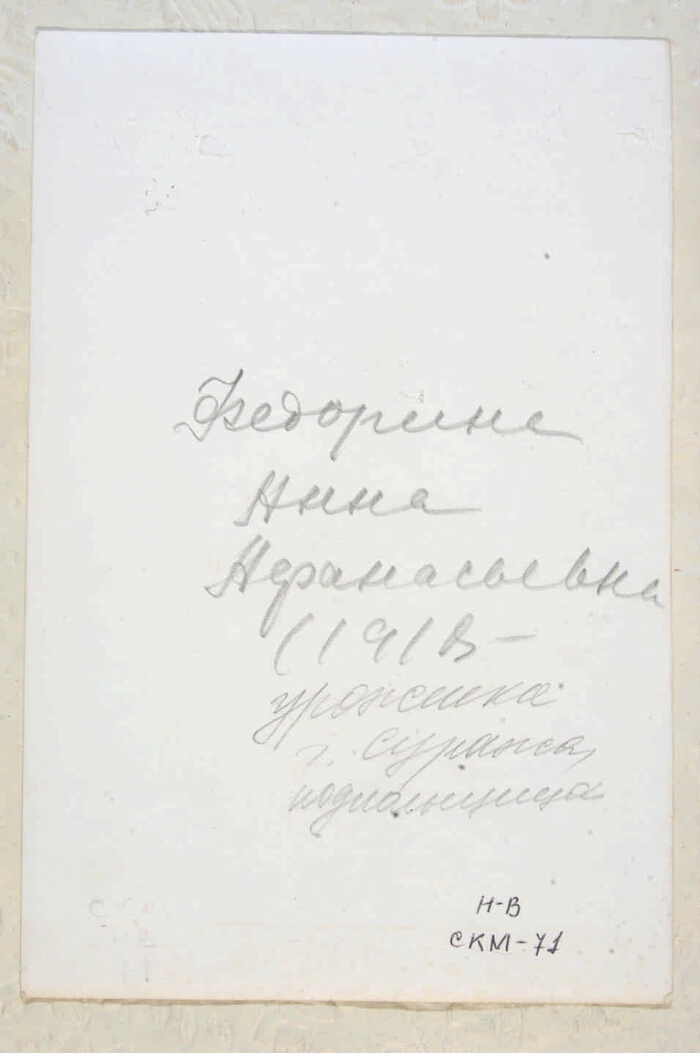 Федорина
Анна
Афанасьевна
(1918 –
уроженка
г. Суража,
подпольщица
Н-В
СКМ-71